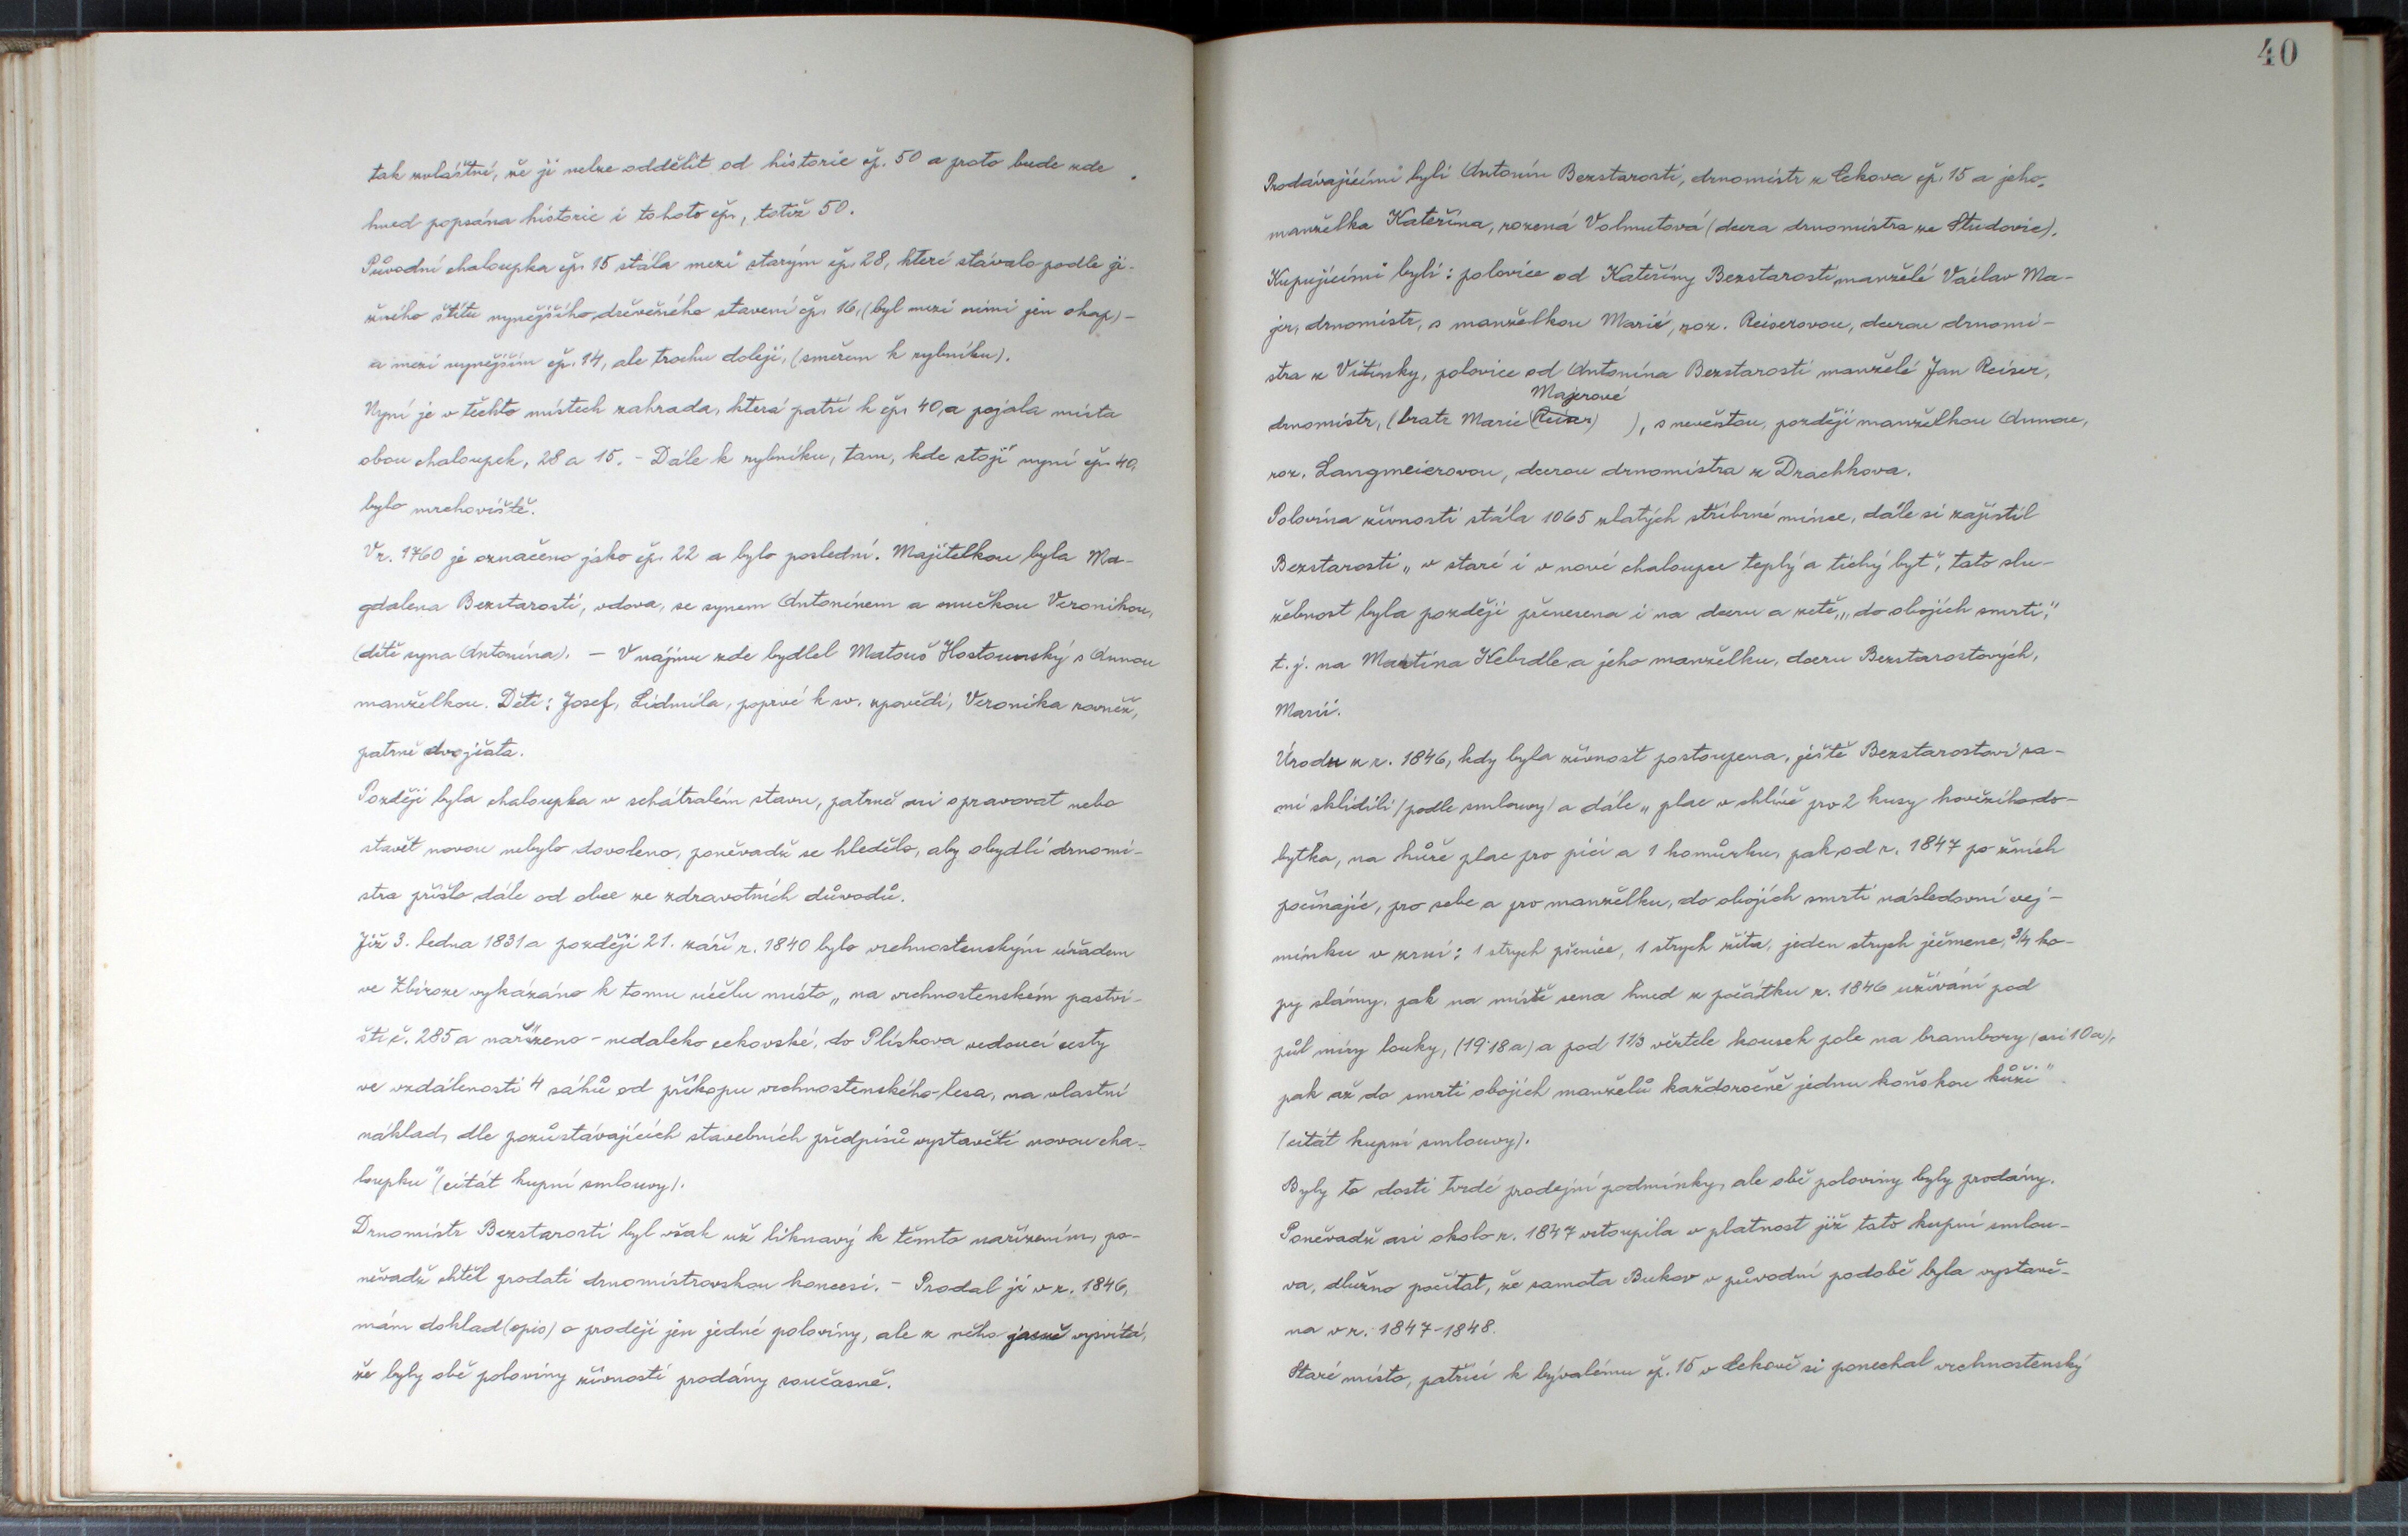 tak zvláštní, že ji nelze oddělit od historie čp. 50 a proto bude zde
hned popsána historie i tohoto čp., totiž 50.
Původní chaloupka čp. 15 stála mezi starým čp. 28, které stávalo podle ji-
žního štítu nynějšího dřevěného stavení čp. 16, (byl mezi nimi jen okap) -
a mezi nynějším čp. 14, ale trochu doleji, (směrem k rybníku).
Nyní je v těchto místech zahrada, která patří k čp. 40, a pojala místa
obou chaloupek, 28 a 15. - Dále k rybníku, tam, kde stojí nyní čp. 40,
bylo mrchoviště.
V r. 1760 je označeno jako čp. 22 a bylo poslední. Majitelkou byla Ma-
gdalena Bezstarosti, vdova, se synem Antonínem a vnučkou Veronikou,
(dítě syna Antonína). - V nájmu zde bydlel Matouš Hostounský s Annou
manželkou. Děti: Josef, Lidmila, poprvé k sv. zpovědi, Veronika rovněž,
patrně dvojčata.
Později byla chaloupka v schátralém stavu, patrně asi opravovat nebo
stavět novou nebylo dovoleno, poněvadž se hledělo, aby obydlí drnomi-
stra přišlo dále od obce ze zdravotních důvodů.
Již 3. ledna 1831 a později 21. září r. 1840 bylo vrchnostenským úřadem
ve Zbiroze vykázáno k tomu účelu místo „na vrchnostenském pastvi-
šti č. 285 a nařízeno - nedaleko cekovské, do Plískova vedoucí cesty
ve vzdálenosti 4 sáhů od příkopu vrchnostenského lesa, na vlastní
náklad, dle pozůstávajících stavebních předpisů vystavěti novou cha-
loupku" (citát kupní smlouvy).
Drnomistr Bezstarosti byl však už liknavý k těmto nařízením, po-
něvadž chtěl prodati drnomistrovskou koncesi. - Prodal ji v r. 1846,
mám doklad (opis) o prodeji jen jedné poloviny, ale z něho jasně vysvítá,
že byly obě poloviny živnosti prodány současně.
40
Prodávajícími byli Antonín Bezstarosti, drnomistr z Cekova čp. 15 a jeho
manželka Kateřina, rozená Volmutová (dcera drnomistra ze Studovic).
Kupujícími byli: polovice od Kateřiny Bezstarosti manželé Václav Ma-
jer, drnomistr, s manželkou Marií, roz. Reiserovou, dcerou drnomi-
stra z Vitinky, polovice od Antonína Bezstarosti manželé Jan Reiser,
Majerové
drnomistr, (bratr Marie (Reiser) ), s nevěstou, později manželkou Annou,
roz. Langmeierovou, dcerou drnomistra z Drachkova.
Polovina živnosti stála 1065 zlatých stříbrné mince, dále si zajistil
Bezstarosti „v staré i v nové chaloupce teplý a tichý byt", tato slu-
žebnost byla později přenesena i na dceru a zetě, „do obojích smrti",
t. j. na Martina Kebrdle a jeho manželku, dceru Bezstarostových,
Marii.
Úrodu z r. 1846, kdy byla živnost postoupena, ještě Bezstarostovi sa-
mi sklidili (podle smlouvy) a dále „plac v chlívě pro 2 kusy hovězího do-
bytka, na hůře plac pro píci a 1 komůrku, pak od r. 1847 po žních
počínajíc, pro sebe a pro manželku, do obojích smrti následovní vej-
minku v zrní: 1 strych pšenice, 1 strych žita, jeden strych ječmene, 3/4 ko-
py slámy, pak na místě sena hned z počátku r. 1846 užívání pod
půl míry louky, (19·18 a) a pod 1 1/3 věrtele kousek pole na brambory (asi 10 a),
pak až do smrti obojích manželů každoročně jednu koňskou kůži"
(citát kupní smlouvy).
Byly to dosti tvrdé prodejní podmínky, ale obě poloviny byly prodány.
Poněvadž asi okolo r. 1847 vstoupila v platnost již tato kupní smlou-
va, dlužno počítat, že samota Bukov v původní podobě byla vystavě-
na v r. 1847-1848.
Staré místo, patřící k bývalému čp. 15 v Cekově si ponechal vrchnostenský